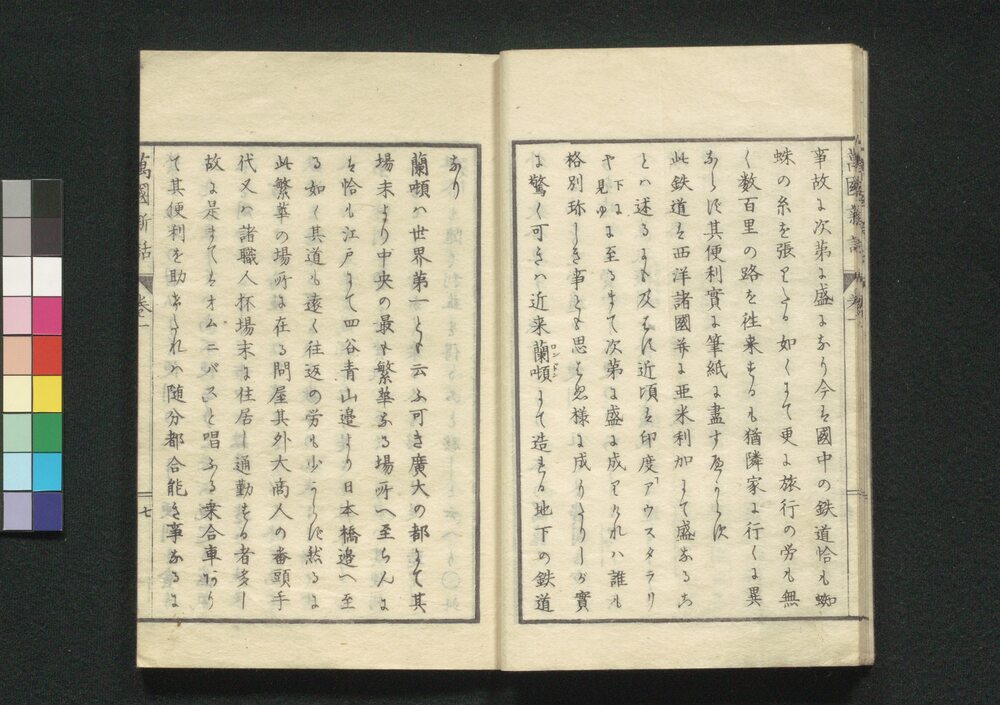 事故に次第に盛になり今は國中の鉄道恰も蜘
蛛の糸を張りたる如くにて更に旅行の労も無
く数百里の路を徃来するも猶隣家に行くに異
ならず其便利實に筆紙に盡すべからず
此鉄道は西洋諸國并に亜米利加にて盛なるこ
とハ述るにも及ばず近頃は印度「アウスタラリ
ヤ下に見ゆに至るまて次第に盛に成りけれハ誰も
格別珍しき事とも思はぬ様に成りたりしが實
に驚く可きハ近来蘭頓ロンドンにて造れる地下の鉄道
萬國新話
巻一
なり
蘭頓ハ世界第一とも云ふ可き廣大の都にて其
場末より中央の最も繁華なる場所へ至らんに
は恰も江戸にて四谷青山邊より日本橋邊へ至
る如く其道も遠く往返の労も少からず然るに
此繁華の場所に在る問屋其外大商人の番頭手
代又ハ諸職人杯場末に住居し通勤する者多し
故に是まてはオムニバスと唱ふる乗合車ありり
て其便利を助けたれハ随分都合能き事なるに
萬國新話
巻一
七